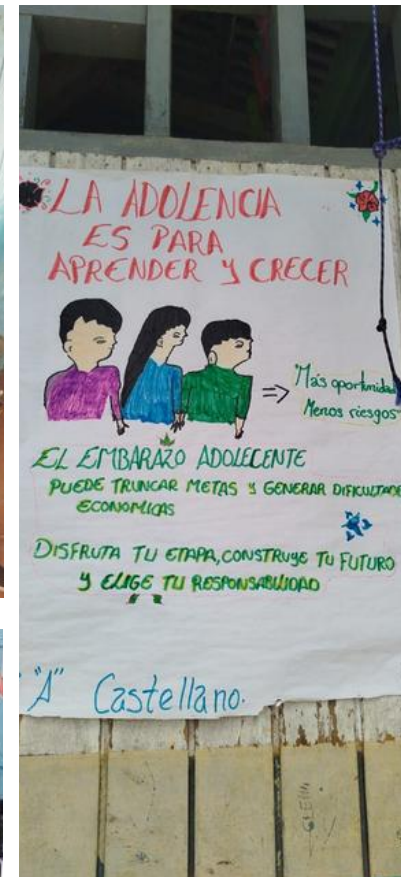 LA ADOLENCIA
ES PARA
APRENDER Y CRECER
⇒ Más oportunidad
Menos riesgos
EL EMBARAZO ADOLECENTE
PUEDE TRUNCAR METAS Y GENERAR DIFICULTADE
ECONOMICAS
DISFRUTA TU ETAPA, CONSTRUYE TU FUTURO
Y ELIGE TU RESPONSABILIDAD
"A" Castellano.